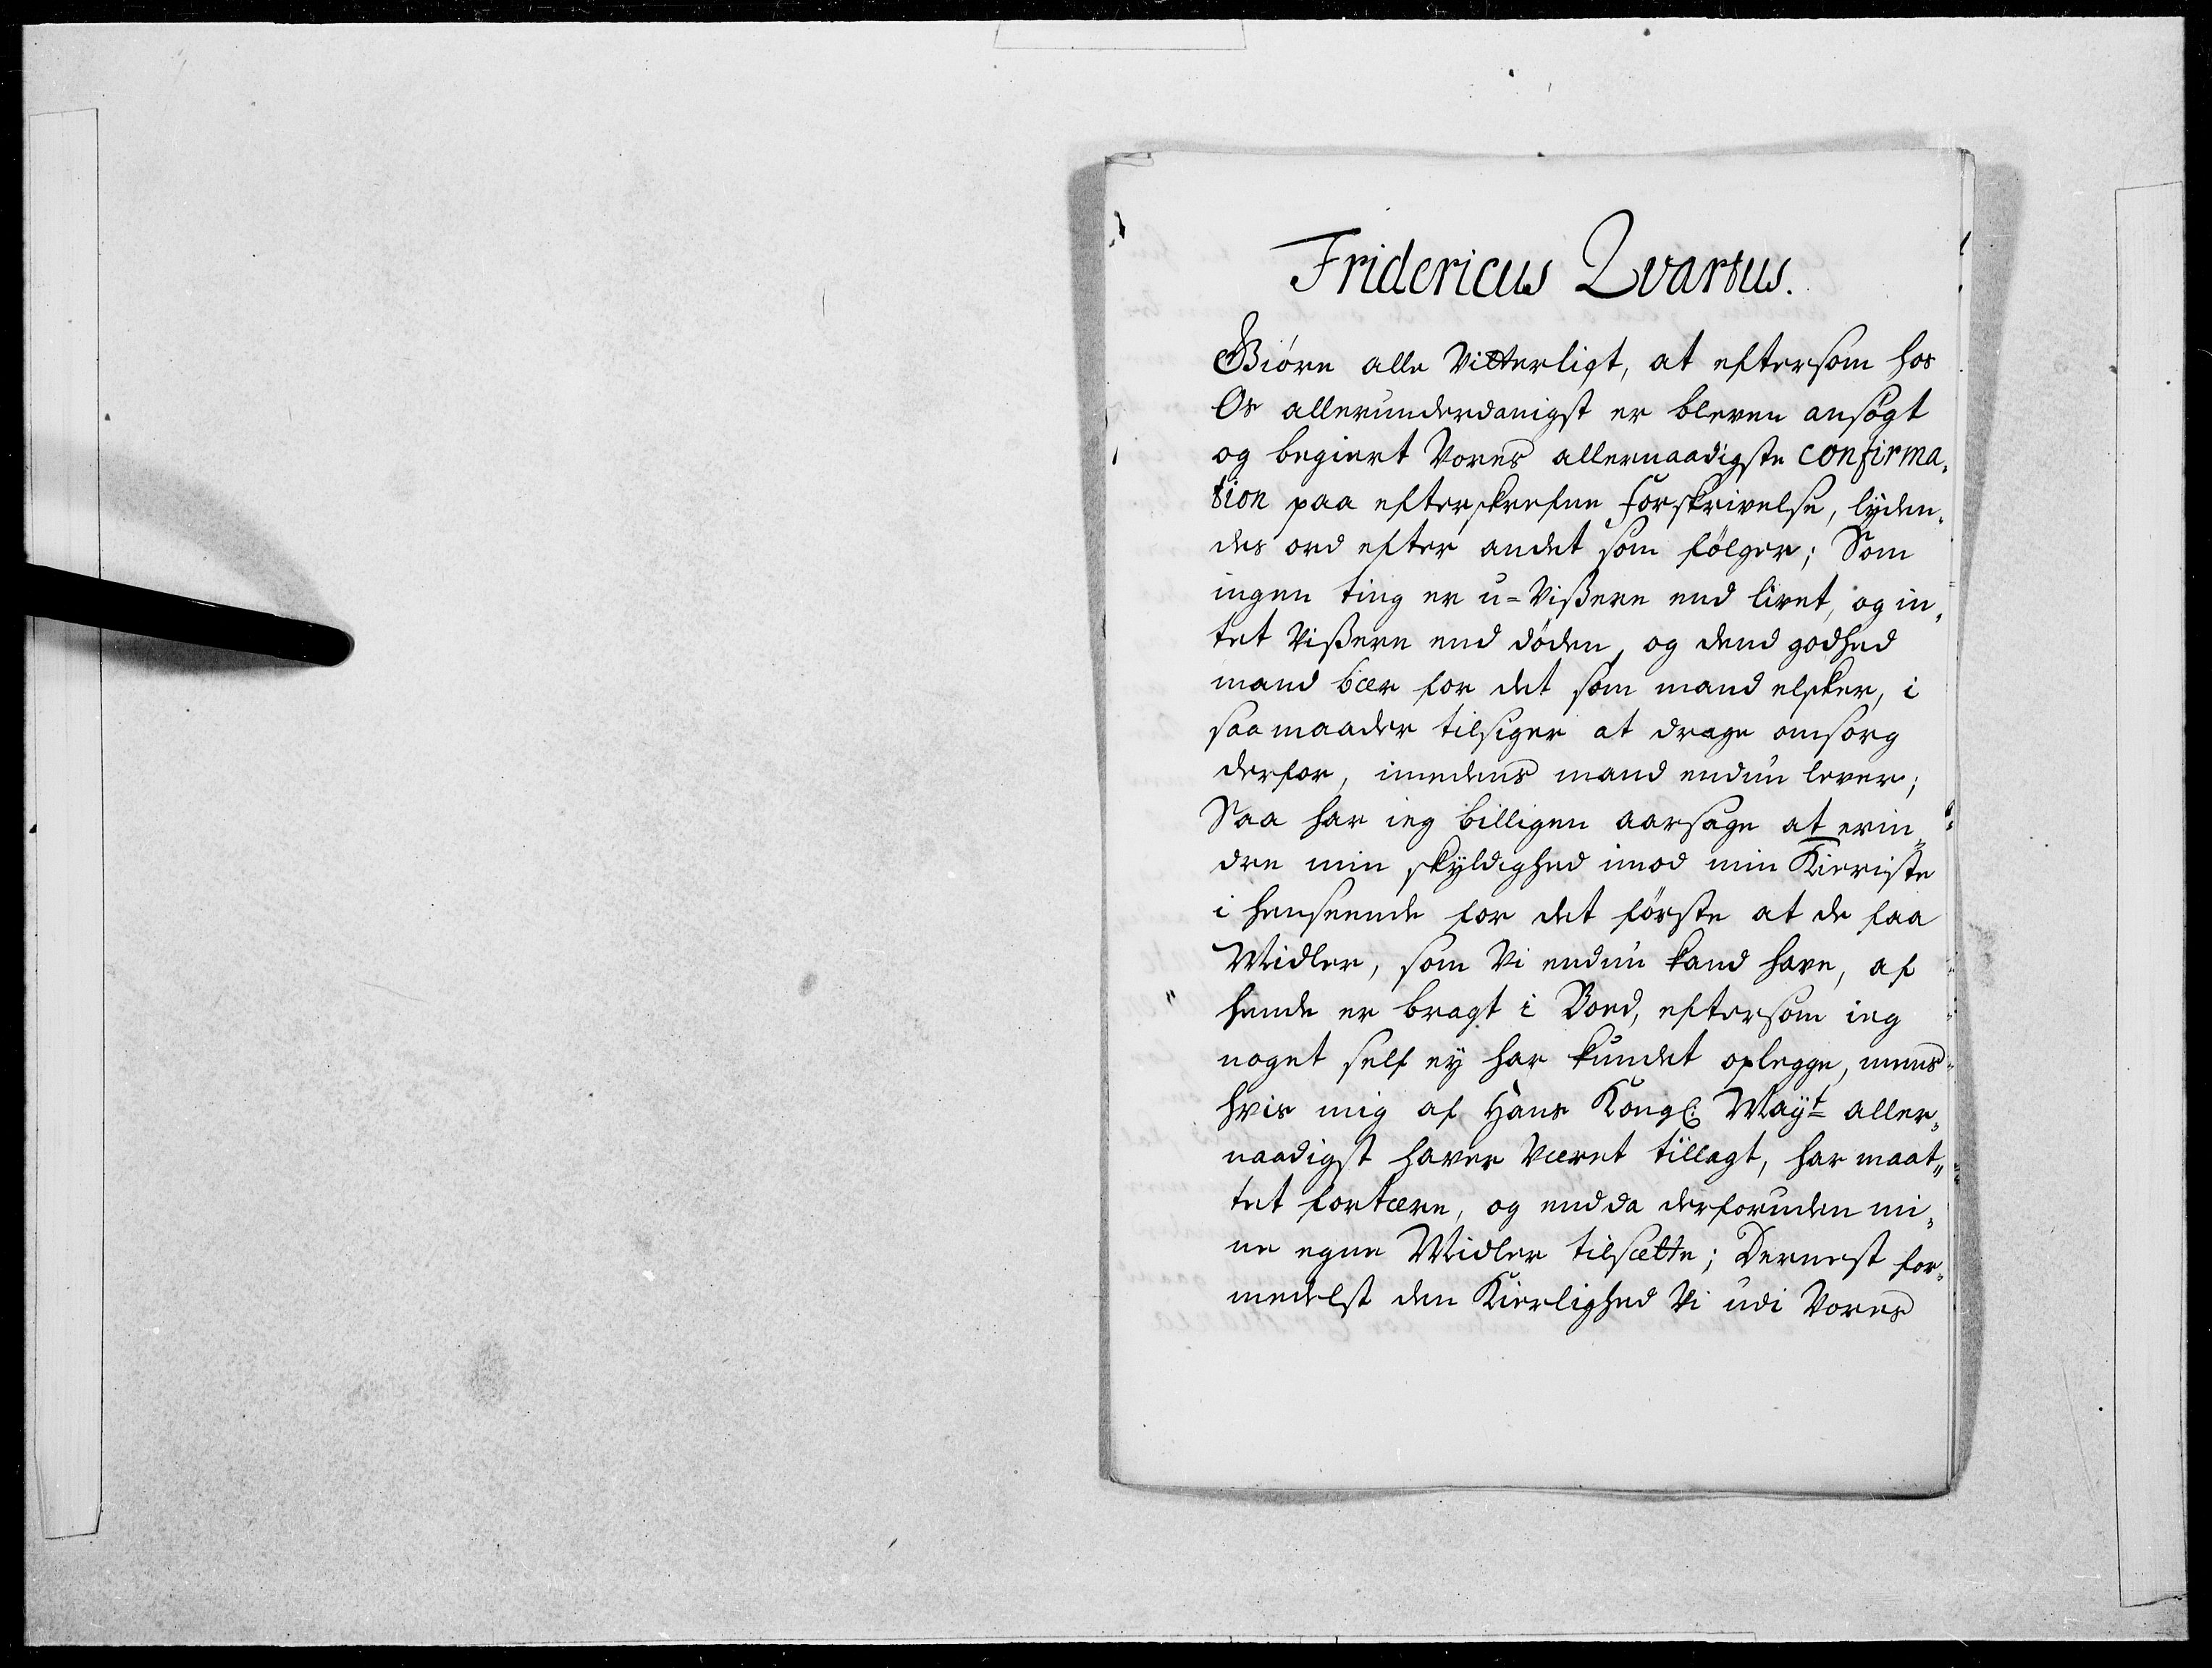 Fridericus Qvartus.
Giöre alle Vitterligt, at eftersom hos
Os allerunderdanigst er bleven ansøgt
og begiert Vores allernaadigste confirma,
tion paa efterskrefne forskrivelse, lyden,
des ord efter andet som fölger; Som
ingen ting er u=Vißere end livet, og in,
tet Vißere end döden, og dend godhed
mand bær for det som mand elsker, i
saa maader tilsiger at drage omsorg
derfor, imedens mand endnu lever;
Saa har ieg billigen aarsage at erin,
dre min skyldighed imod min Kieriste
i henseende for det förste at de faa
Midler, som Vi endnu kand have, af
hende er bragt i Boed, eftersom ieg
noget self ey har kundet oplegge, mens
hvis mig af Hans Kongl: Mayt aller,
naadigst haver Været tillagt, har maat,
tet fortære, og endda derforuden mi,
ne egne Midler tilsætte; Dernest for,
medelst den Kierlighed Vi udi Vores